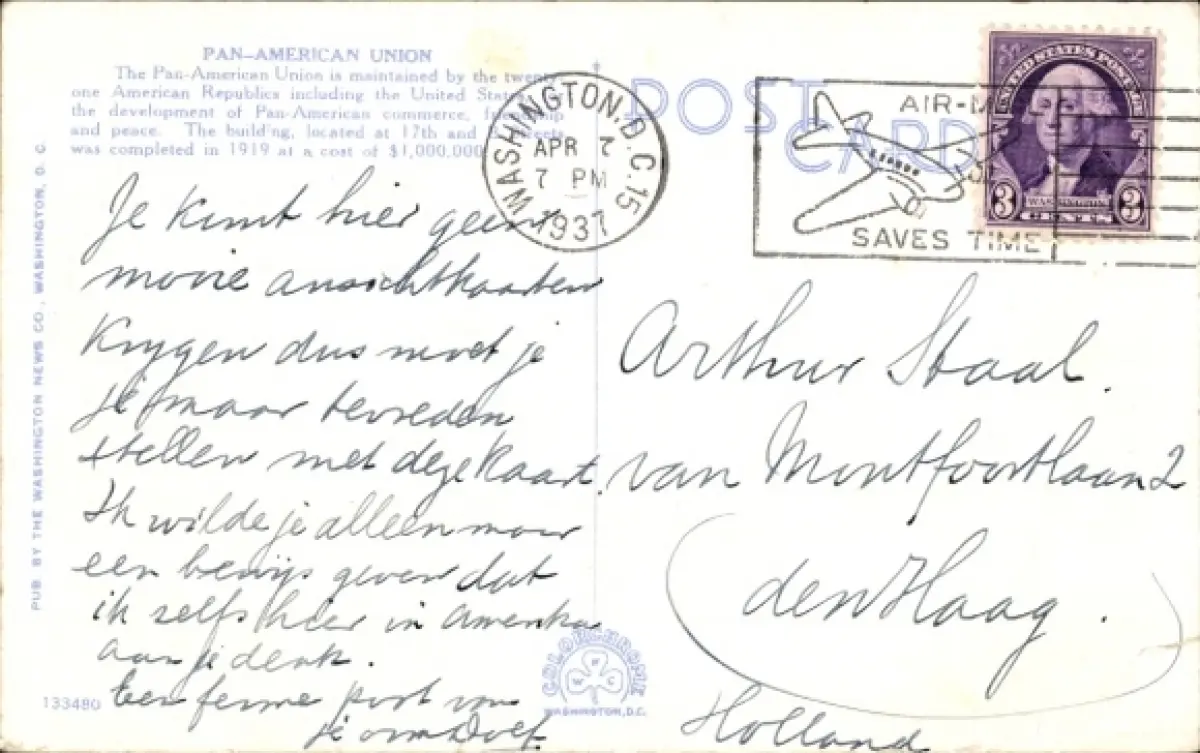 PAN-AMERICAN UNION
The Pan-American Union is maintained by the twenty-
one American Republics including the United States,
the development of Pan-American commerce, friendship
and peace. The building, located at 17th and
was completed in 1919 at a cost of $1,000,000
Je kunt hier geen
mooie ansichtkaarten
krygen dus moet je
je maar tevreden
stellen met deze kaart.
Ik wilde je alleen maar
een bewijs geven dat
ik zelfs hier in Amerika
aan je denk.
Een ferme poot van
je oom
133480
PUB BY THE WASHINGTON NEWS CO., WASHINGTON, D. C.
COLORCHROME
W N C
WASHINGTON, D.C.
WASHINGTON, D.C. 15
APR 7
7 PM
1937
POST
CARD
AIR-M
SAVES TIME
UNITED STATES POSTAGE
3 WASHINGTON 3
CENTS
Arthur Staal.
van Montfoortlaan 2
den Haag.
Holland